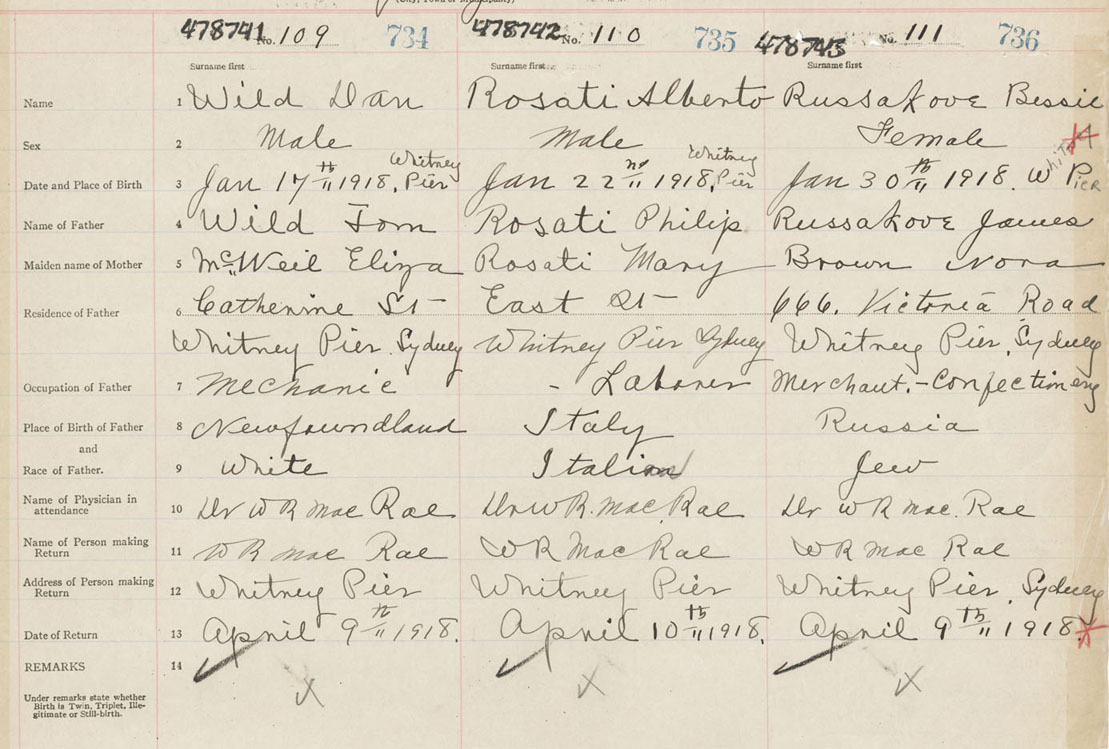 (City, Town or Municipality)
478741 No. 109 734 478742 No. 110 735 478743 No. 111 736
Surname first Surname first Surname first
Name 1 Wild Dan Rosati Alberto Russakove Bessie
Sex 2 Male Male Female
Date and Place of Birth 3 Jan 17th 1918, Whitney Pier Jan 22nd 1918, Whitney Pier Jan 30th 1918. W Pier
Name of Father 4 Wild Tom Rosati Philip Russakove James
Maiden name of Mother 5 McNeil Eliza Rosati Mary Brown Nora
Residence of Father 6 Catherine St East St 666. Victoria Road
Whitney Pier. Sydney Whitney Pier Sydney Whitney Pier, Sydney
Occupation of Father 7 Mechanic - Laborer Merchant. - Confectionery
Place of Birth of Father 8 Newfoundland Italy Russia
and
Race of Father. 9 White Italian Jew
Name of Physician in attendance 10 Dr W R MacRae Dr W R. MacRae Dr W R Mac Rae
Name of Person making Return 11 W R MacRae W R MacRae W R Mac Rae
Address of Person making Return 12 Whitney Pier Whitney Pier Whitney Pier, Sydney
Date of Return 13 April 9th 1918. April 10th 1918. April 9th 1918.
REMARKS 14
Under remarks state whether
Birth is Twin, Triplet, Ille-
gitimate or Still-birth.